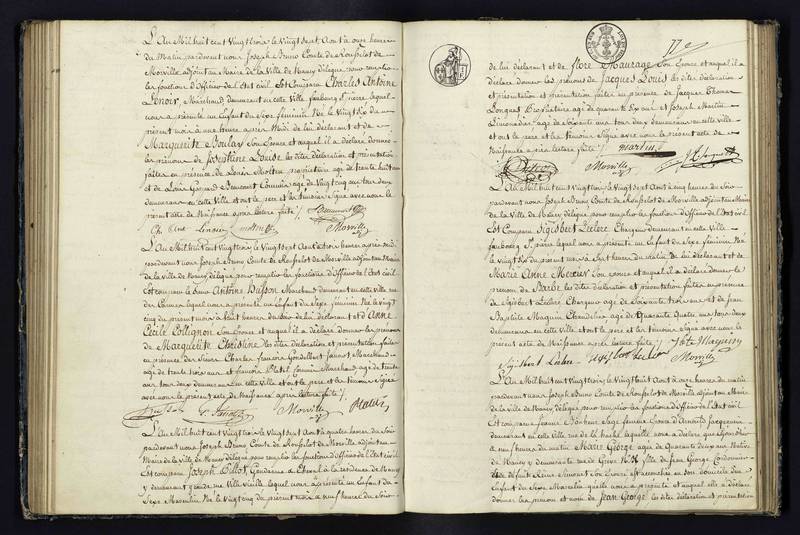 L'An Mil huit cent Vingt trois le Vingt sept Aout à onze heures
du Matin pardevant nous Joseph Bruno Comte de Rousselot de
Morville adjoint au Maire de la Ville de Nancy délégué pour remplir
les fonctions d'Officier de l'Etat civil. Est Comparu Charles Antoine
Lenoir, Marchand, demeurant en cette Ville faubourg St pierre lequel
nous a présenté un Enfant du Sexe féminin Né le Vingt six du
présent mois à une heure après Midi de lui déclarant et de
Marguerite Boulay Son Epouse et auquel il a déclaré donner
les prénoms de Josephine Louise les dites déclaration et présentation
faites en présence de Louis propriétaire agé de trente huit ans
et de Louis Beaucourt Commis agé de Vingt cinq ans tous deux
demeurans en cette Ville et ont le père et les témoins Signé avec nous le
présent acte de Naissance après lecture faite /.
Ch Ant Lenoir Morville
L'An Mil huit cent Vingt trois le Vingt sept Aout à trois heures après midi
pardevant nous Joseph Bruno Comte de Rousselot de Morville adjoint au Maire
de la Ville de Nancy délégué pour remplir les fonctions d'Officier de l'Etat civil
Est comparu le Sieur Antoine Husson Marchand demeurant en cette Ville rue
des Carmes lequel nous a présenté un Enfant du Sexe féminin Né le Vingt
cinq du présent mois à huit heures du Soir de lui déclarant et d'Anne
Cécile Collignon Son Epouse et auquel il a déclaré donner les prénoms
de Marguerite Christine les dites déclaration et présentation faites
en présence des Sieurs Charles françois Jeannot Marchand
agé de trente trois ans et françois Platel Commis Marchand agé de trente
ans tous deux demeurans en cette Ville et ont le père et les témoins Signé
avec nous le présent acte de Naissance après lecture faite /.
Husson Morville
L'An Mil huit cent Vingt trois le Vingt sept Aout à quatre heures du Soir
pardevant nous Joseph Bruno Comte de Rousselot de Morville adjoint au
Maire de la Ville de Nancy délégué pour remplir les fonctions d'Officier de l'Etat civil
Est comparu Joseph Billot, Gendarme à Cheval à la résidence de Nancy
y demeurant grande rue Ville vieille lequel nous a présenté un Enfant du
Sexe Masculin Né le Vingt cinq du présent mois à neuf heures du Soir
77e
de lui déclarant et de flore Maurage Son Epouse et auquel il a
déclaré donner les prénoms de Jacques Louis les dites déclaration
et présentation faites en présence de Jacques Thomas
propriétaire agé de quarante six ans et Joseph Martin
Limonadier agé de Soixante ans tous deux demeurans en cette ville
et ont le père et les témoins Signé avec nous le présent acte de
Naissance après lecture faite /. martin
Billot Morville
L'An Mil huit cent Vingt trois le Vingt sept Aout à cinq heures du Soir
pardevant nous Joseph Bruno Comte de Rousselot de Morville adjoint au Maire
de la Ville de Nancy délégué pour remplir les fonctions d'Officier de l'Etat civil
Est Comparu Sigisbert Leclerc Chargeur demeurant en cette Ville
faubourg St pierre lequel nous a présenté un Enfant du Sexe féminin Né
le Vingt six du présent mois à Sept heures du matin de lui déclarant et de
Marie Anne Mercier Son Epouse et auquel il a déclaré donner le
prénom de Barbe les dites déclaration et présentation faites en présence
de Sigisbert Leclerc Chargeur agé de Soixante trois ans et de Jean
Baptiste Maguin Chandelier agé de Quarante Quatre ans tous deux
demeurans en cette ville et ont le père et les témoins Signé avec nous le
présent acte de Naissance après lecture faite /.
Sigisbert Leclerc Morville
L'An Mil huit cent Vingt trois le Vingt huit Aout à onze heures du matin
pardevant nous Joseph Bruno Comte de Rousselot de Morville adjoint au Maire
de la Ville de Nancy délégué pour remplir les fonctions d'Officier de l'Etat civil
Est comparue Jeanne Sage femme Epouse d'Arnould
demeurant en cette ville rue de la hache laquelle nous a déclaré que
à neuf heures du matin Marie George agée de quarante deux ans Native
de Nancy y demeurante rue de Grève No fille de Jean George Cordonnier
et de défunte Reine Simonet Son Epouse est accouchée en Son domicile d'un
Enfant du Sexe Masculin qu'elle nous a présenté et auquel elle a déclaré
donner les prénom et nom de Jean George les dites déclaration et présentation